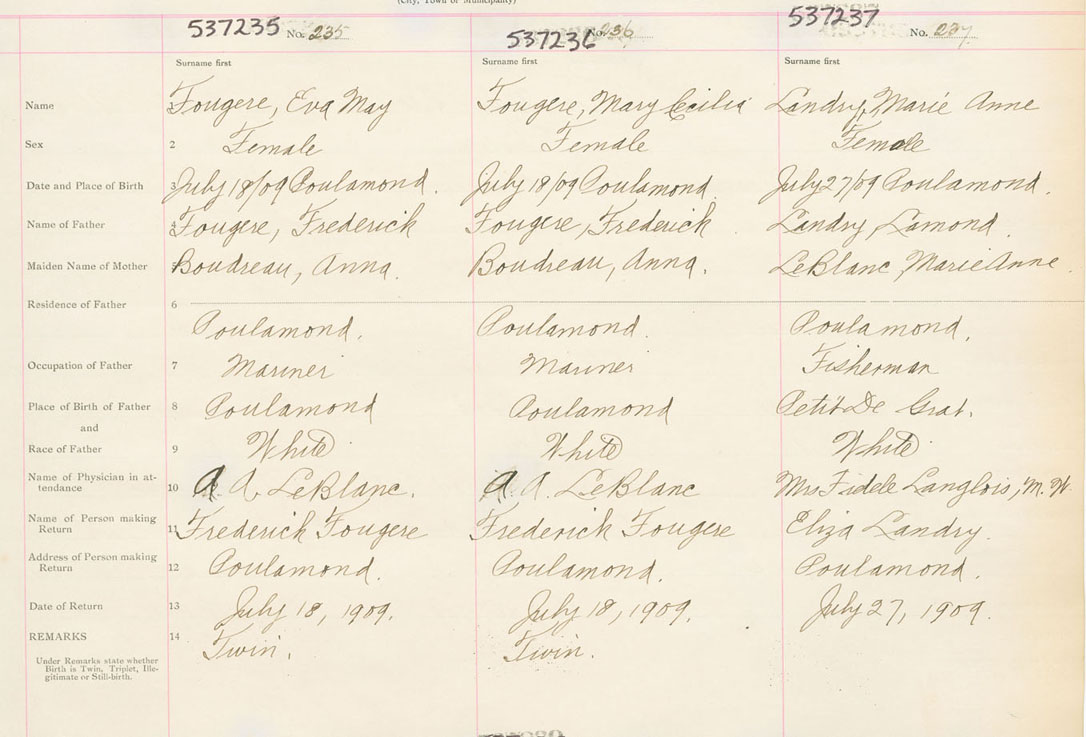 (City, Town or Municipality)
537235 No. 235 537236 No. 236 537237 No. 237
Surname first Surname first Surname first
Name Fougere, Eva May Fougere, Mary Cecilia Landry, Marie Anne
Sex 2 Female Female Female
Date and Place of Birth 3 July 18/09 Poulamond. July 18/09 Poulamond. July 27/09 Poulamond.
Name of Father 4 Fougere, Frederick Fougere, Frederick Landry, Lamond.
Maiden Name of Mother 5 Boudreau, Anna. Boudreau, Anna. LeBlanc, Marie Anne.
Residence of Father 6
Poulamond. Poulamond. Poulamond.
Occupation of Father 7 Mariner Mariner Fisherman
Place of Birth of Father 8 Poulamond Poulamond Petit De Grat.
and
Race of Father 9 White White White
Name of Physician in at-
tendance 10 A A. LeBlanc. A. A. LeBlanc Mrs Fidele Langlois, M. W.
Name of Person making
Return 11 Frederick Fougere Frederick Fougere Eliza Landry.
Address of Person making
Return 12 Poulamond. Poulamond. Poulamond.
Date of Return 13 July 18, 1909. July 18, 1909. July 27, 1909.
REMARKS 14 Twin. Twin.
Under Remarks state whether
Birth is Twin, Triplet, Ille-
gitimate or Still-birth.